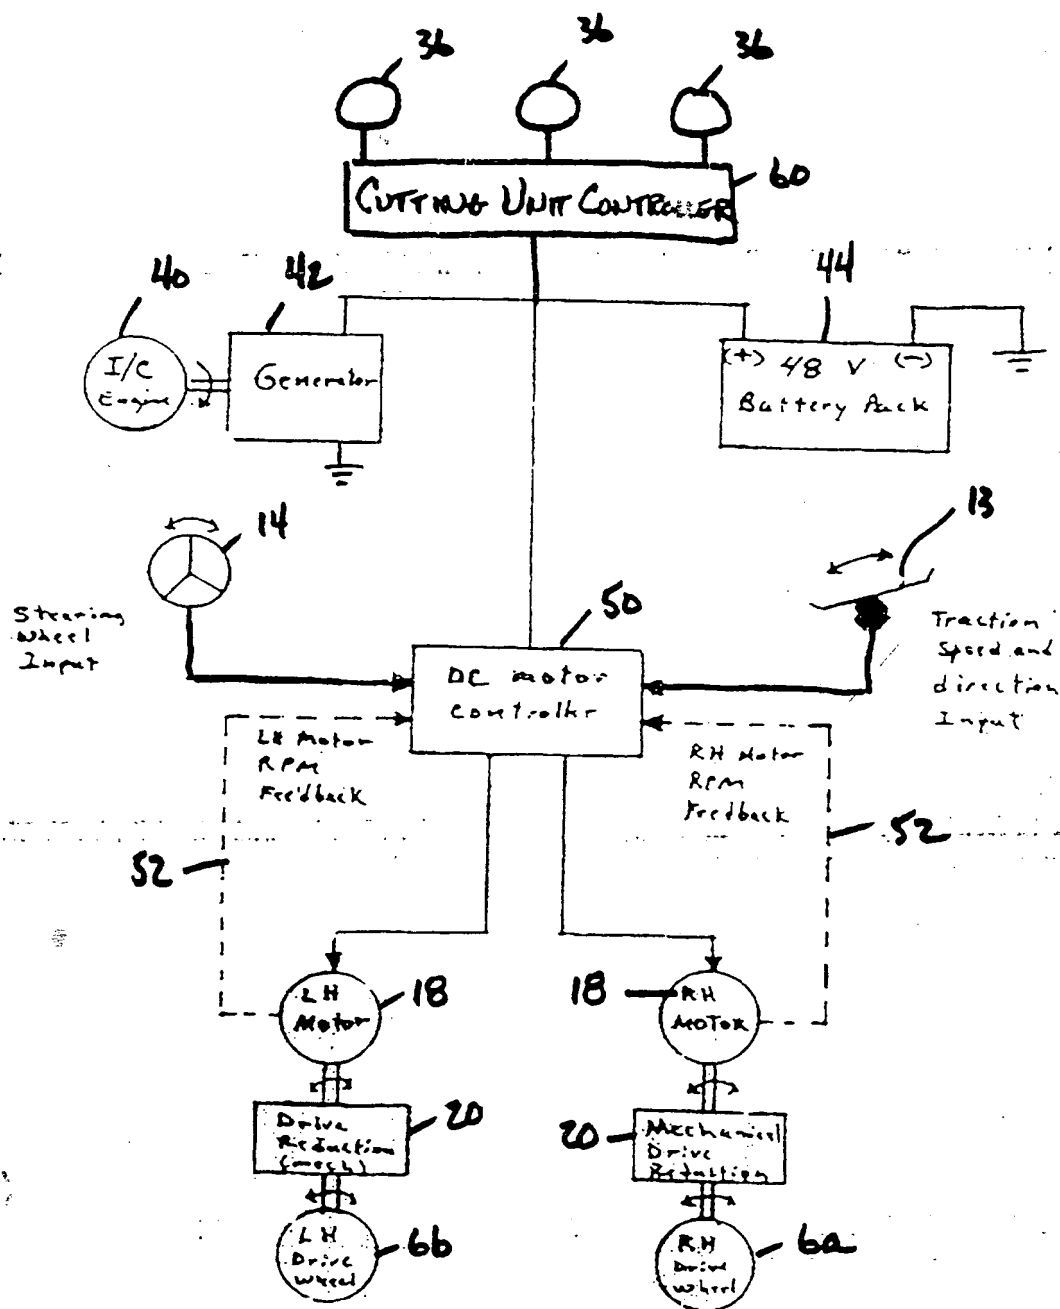 36
36
36
60
CUTTING UNIT CONTROLLER
40
42
44
I/C
Engine
Generator
(+) 48 V (-)
Battery Pack
14
13
Steering
Wheel
Input
50
Traction
Speed and
direction
Input
DC motor
controller
LH Motor
RPM
Feedback
RH Motor
RPM
Feedback
52
52
LH
Motor
18
18
RH
MOTOR
Drive
Reduction
(mech)
20
20
Mechanical
Drive
Reduction
LH
Drive
Wheel
6b
RH
Drive
Wheel
6a